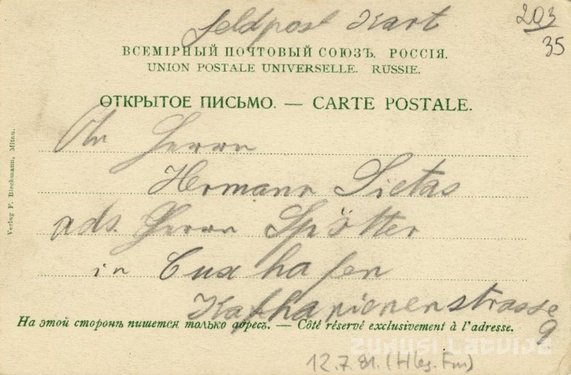 Feldpost Kart
203
35
ВСЕМІРНЫЙ ПОЧТОВЫЙ СОЮЗЪ. РОССІЯ.
UNION POSTALE UNIVERSELLE. RUSSIE.
ОТКРЫТОЕ ПИСЬМО. — CARTE POSTALE.
An Herrn
Hermann Sietas
ads. Herrn Spötter
in Cuxhafen
Katharienenstrasse
9
На этой сторонѣ пишется только адресъ. — Côté réservé exclusivement à l'adresse.
12.7.81. (Hlg. Fm)
ZUDUSI LATVIJA